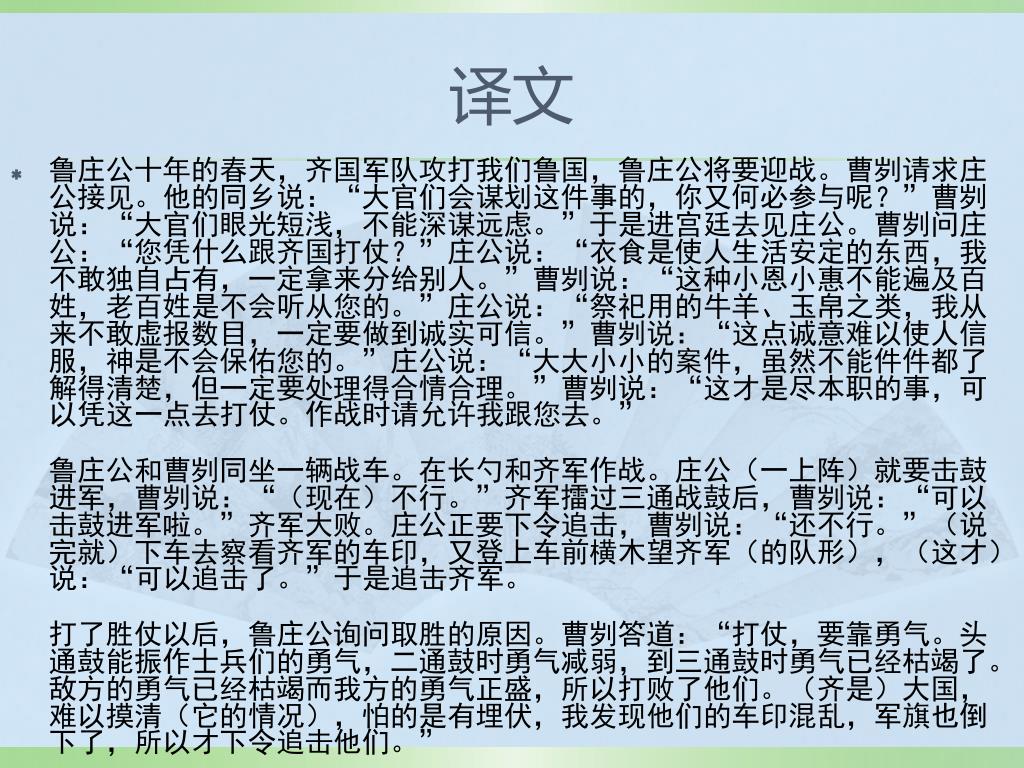 译文
鲁庄公十年的春天，齐国军队攻打我们鲁国，鲁庄公将要迎战。曹刿请求庄
公接见。他的同乡说：“大官们会谋划这件事的，你又何必参与呢？”曹刿
说：“大官们眼光短浅，不能深谋远虑。”于是进宫廷去见庄公。曹刿问庄
公：“您凭什么跟齐国打仗？”庄公说：“衣食是使人生活安定的东西，我
不敢独自占有，一定拿来分给别人。”曹刿说：“这种小恩小惠不能遍及百
姓，老百姓是不会听从您的。”庄公说：“祭祀用的牛羊、玉帛之类，我从
来不敢虚报数目，一定要做到诚实可信。”曹刿说：“这点诚意难以使人信
服，神是不会保佑您的。”庄公说：“大大小小的案件，虽然不能件件都了
解得清楚，但一定要处理得合情合理。”曹刿说：“这才是尽本职的事，可
以凭这一点去打仗。作战时请允许我跟您去。”
鲁庄公和曹刿同坐一辆战车。在长勺和齐军作战。庄公（一上阵）就要击鼓
进军，曹刿说：“（现在）不行。”齐军擂过三通战鼓后，曹刿说：“可以
击鼓进军啦。”齐军大败。庄公正要下令追击，曹刿说：“还不行。”（说
完就）下车去察看齐军的车印，又登上车前横木望齐军（的队形），（这才）
说：“可以追击了。”于是追击齐军。
打了胜仗以后，鲁庄公询问取胜的原因。曹刿答道：“打仗，要靠勇气。头
通鼓能振作士兵们的勇气，二通鼓时勇气减弱，到三通鼓时勇气已经枯竭了。
敌方的勇气已经枯竭而我方的勇气正盛，所以打败了他们。（齐是）大国，
难以摸清（它的情况），怕的是有埋伏，我发现他们的车印混乱，军旗也倒
下了，所以才下令追击他们。”